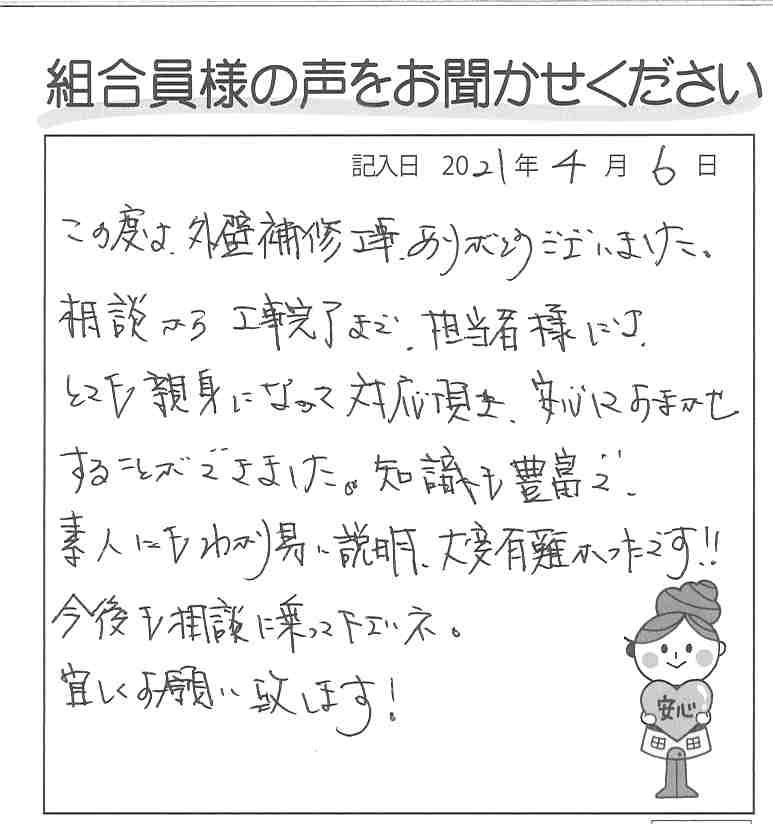 組合員様の声をお聞かせください
記入日 2021年 4月 6日
この度は、外壁補修工事、ありがとうございました。
相談から工事完了まで、担当者様には、
とても親身になって対応頂き、安心におまかせ
することができました。知識も豊富で、
素人にもわかり易い説明、大変有難かったです!!
今後も相談に乗って下さいネ。
宜しくお願い致します!
安心